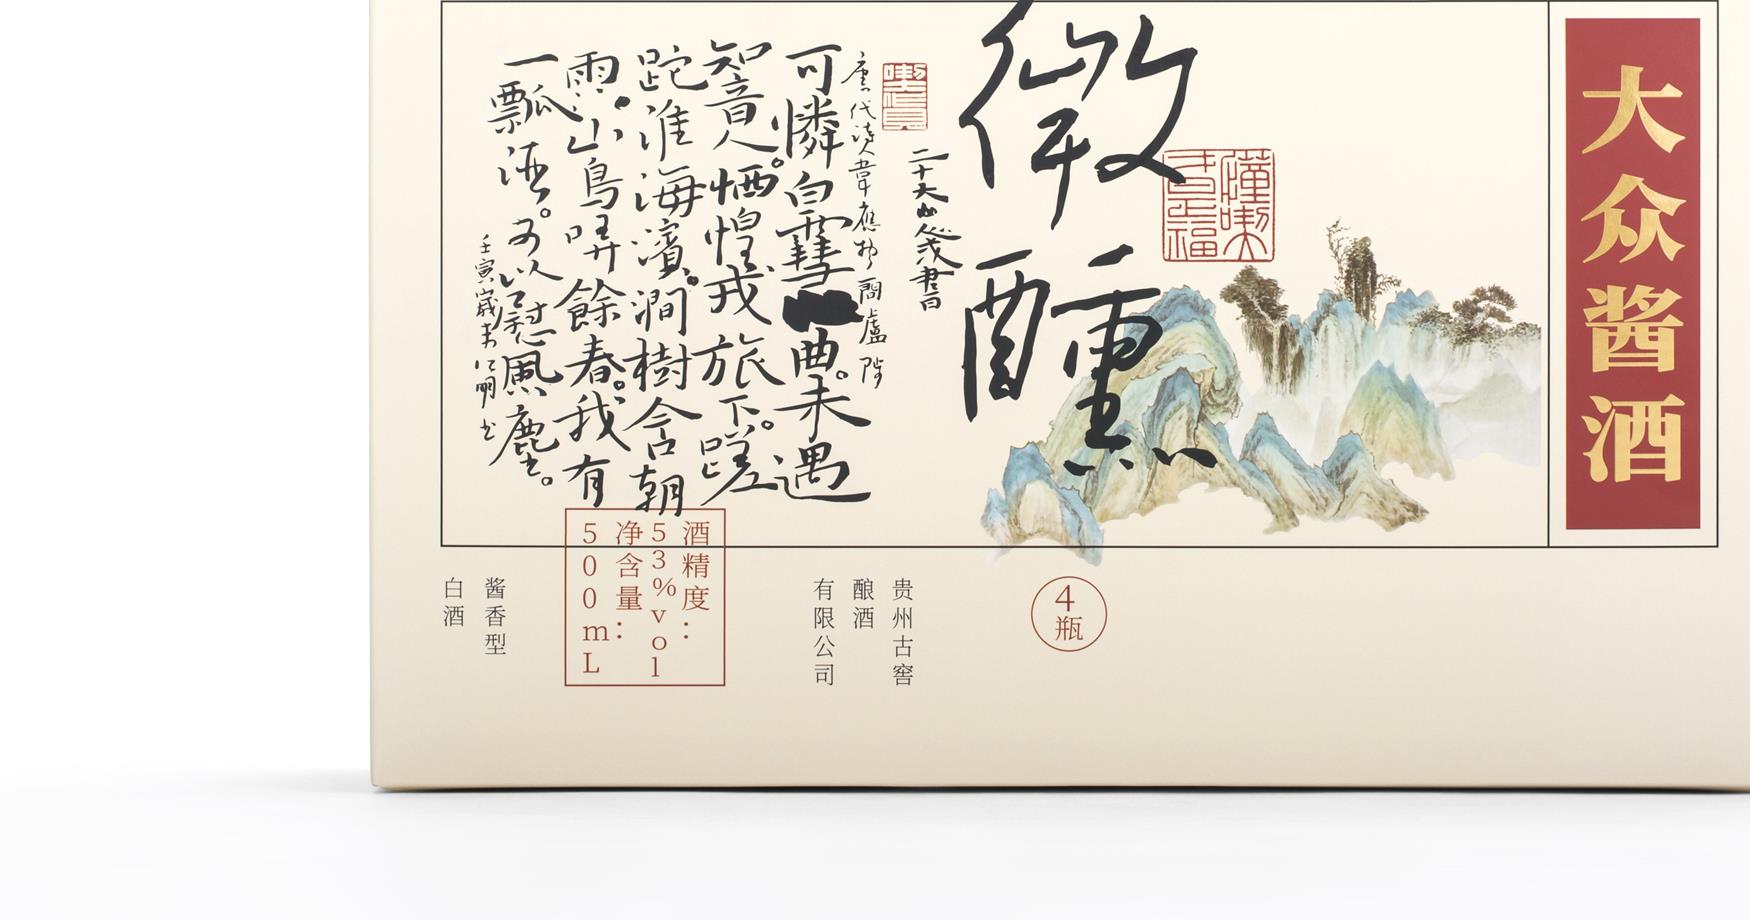 大众酱酒
微醺
唐代诗人韋應物 簡盧陟
可憐白雪曲。未遇
知音人。恓惶戎旅下。蹉
跎淮海濱。澗樹含朝
雨。山鳥哢餘春。我有
一瓢酒。可以慰風塵。
4瓶
贵州古窖
酿酒
有限公司
酒精度：
53%vol
净含量：
500mL
酱香型
白酒